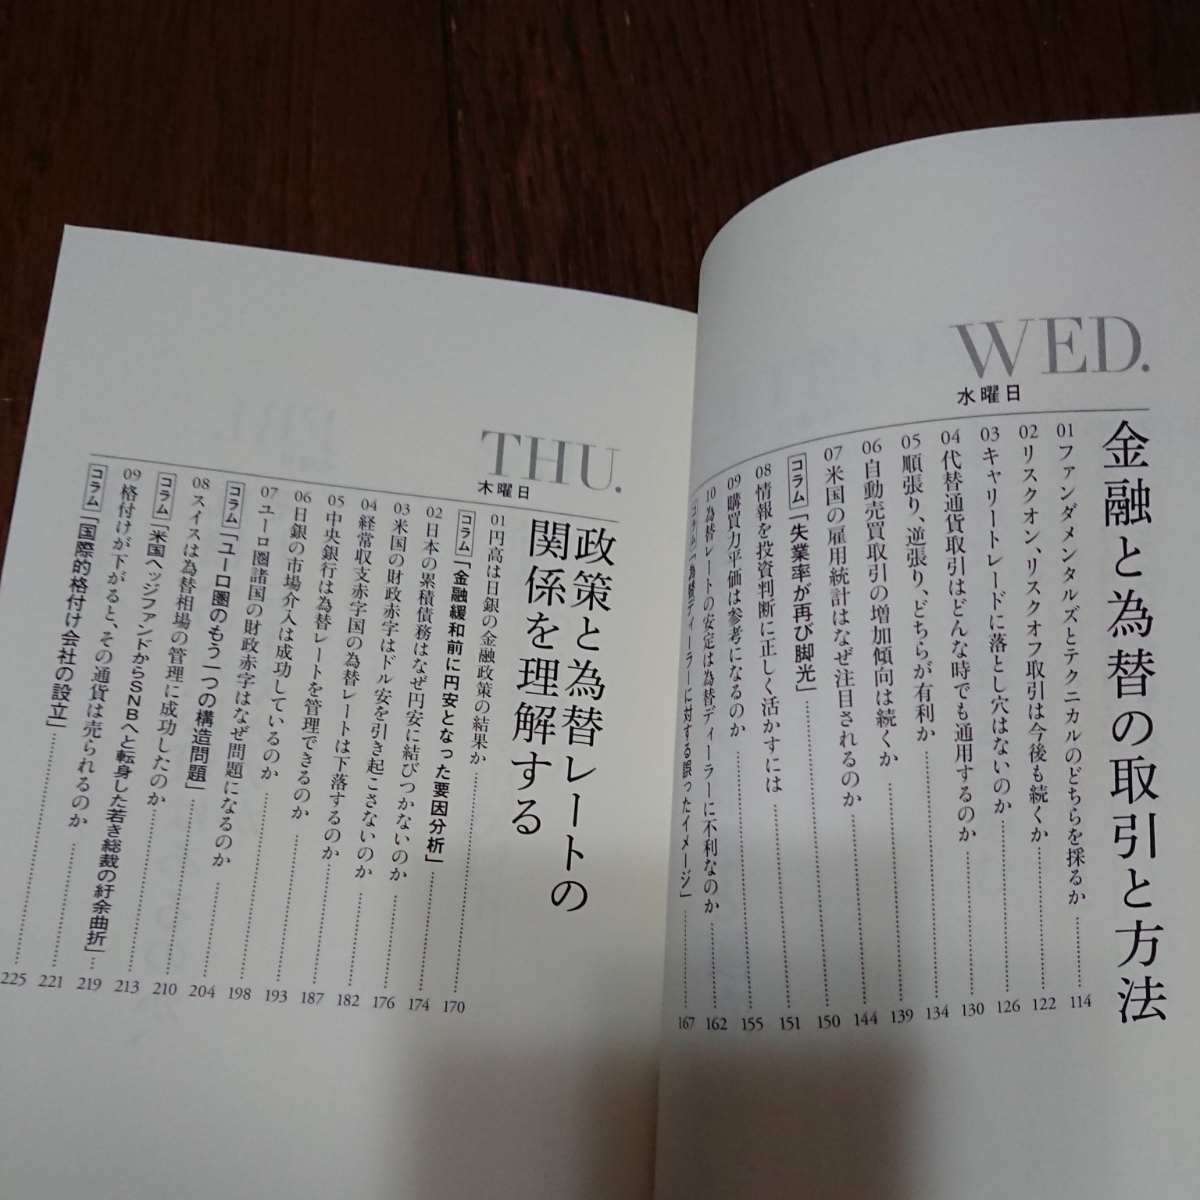 WED.
水曜日
金融と為替の取引と方法
01 ファンダメンタルズとテクニカルのどちらを採るか……114
02 リスクオン、リスクオフ取引は今後も続くか……122
03 キャリートレードに落とし穴はないのか……126
04 代替通貨取引はどんな時でも通用するのか……130
05 順張り、逆張り、どちらが有利か……134
06 自動売買取引の増加傾向は続くか……139
07 米国の雇用統計はなぜ注目されるのか……144
コラム「失業率が再び脚光」……150
08 情報を投資判断に正しく活かすには……151
09 購買力平価は参考になるのか……155
10 為替レートの安定は為替ディーラーに不利なのか……162
コラム「為替ディーラーに対する誤ったイメージ」……167
THU.
木曜日
政策と為替レートの
関係を理解する
01 円高は日銀の金融政策の結果か……170
コラム「金融緩和前に円安となった要因分析」……174
02 日本の累積債務はなぜ円安に結びつかないのか……176
03 米国の財政赤字はドル安を引き起こさないのか……182
04 経常収支赤字国の為替レートは下落するのか……187
05 中央銀行は為替レートを管理できるのか……193
06 日銀の市場介入は成功しているのか……198
07 ユーロ圏諸国の財政赤字はなぜ問題になるのか……204
コラム「ユーロ圏のもう一つの構造問題」……210
08 スイスは為替相場の管理に成功したのか……213
コラム「米国ヘッジファンドからSNBへと転身した若き総裁の紆余曲折」……219
09 格付けが下がると、その通貨は売られるのか……221
コラム「国際的格付け会社の設立」……225